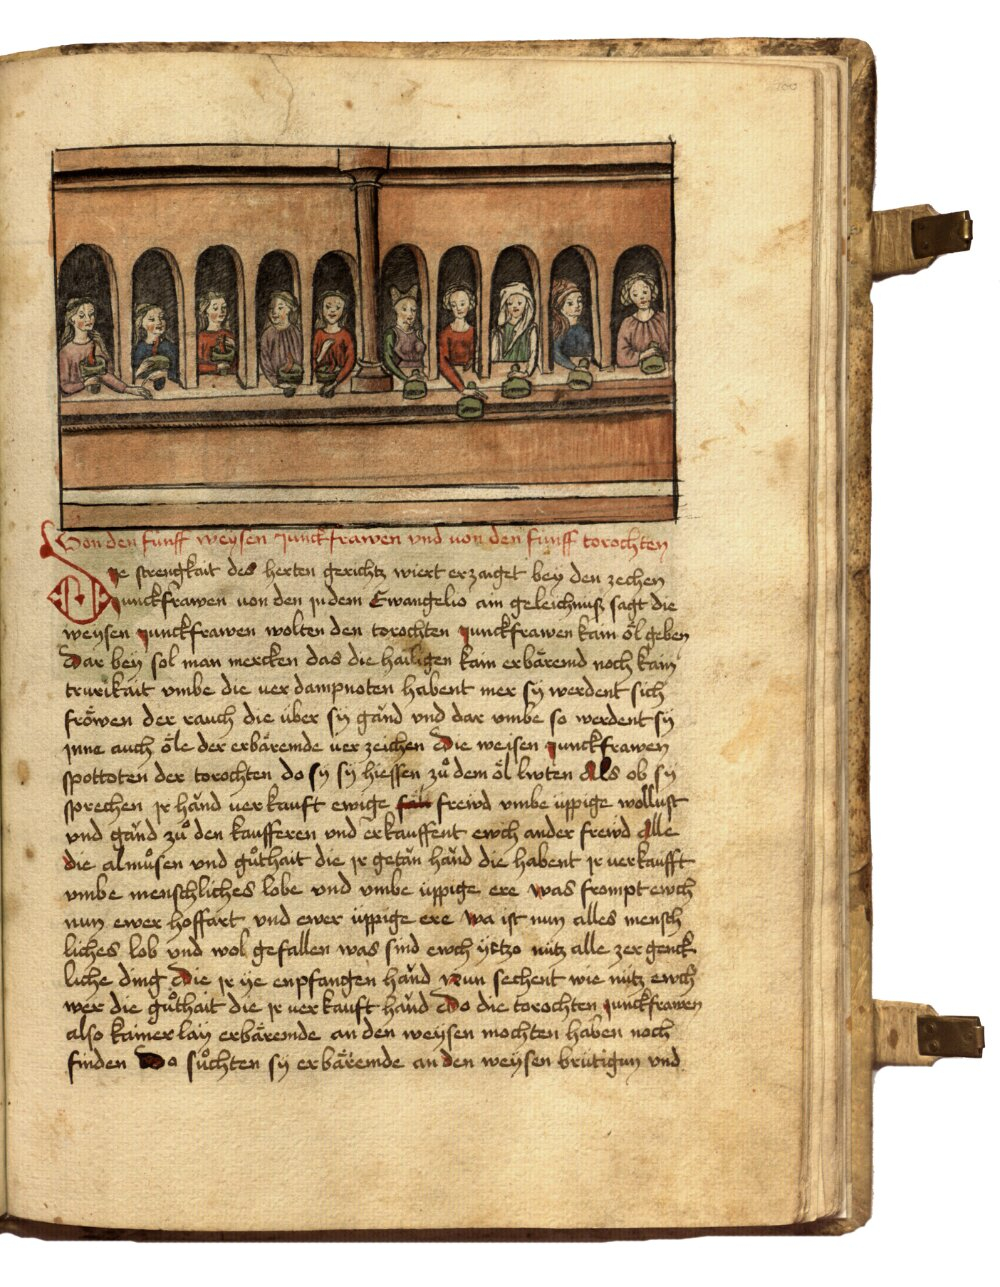 100
Von den fünff weysen junckfrawen vnd von den fünff torochten
Die strengkait des herten gerichtz wiert erzaiget bey den zechen
junckfrawen von den jn dem Ewangelio ain geleichnuß sagt die
weysen junckfrawen wolten den torochten junckfrawen kain öl geben
Dar bey sol man mercken das die hailigen kain erbäremd noch kain
trurikait vmbe die verdampnoten habent mer sÿ werdent sich
fröwen der rauch die über sÿ gǎnd vnd dar vmbe so werdent sÿ
jnne auch öle der erbäremde verzeichen Die weisen junckfrawen
spottoten der torochten do sÿ sÿ hiessen zů dem öl lwten Als ob sÿ
sprechen jr hǎnd verkauft ewige freiwd vmbe üppige wollust
vnd gǎnd zů den kaufferen vnd erkauffent ewch ander freiwd Alle
die almůsen vnd gůthait die jr getǎn hǎnd die habent jr verkaufft
vmbe menschliches lobe vnd vmbe üppige ere Was frompt ewch
nun ewer hoffart vnd ewer üppige ere Wa ist nun alles mensch
liches lob vnd wol gefallen was sind ewch ÿetzo nütz alle zergenck
liche ding Die jr ÿe enpfangen hǎnd Nun sechent wie nütz ewch
wer die gůthait die jr verkauft hǎnd Do die torochten junckfrawen
also kainerlaÿ erbäremde an den weysen mochten haben noch
finden Do sůchten sÿ erbäremde an den weysen brütigun vnd